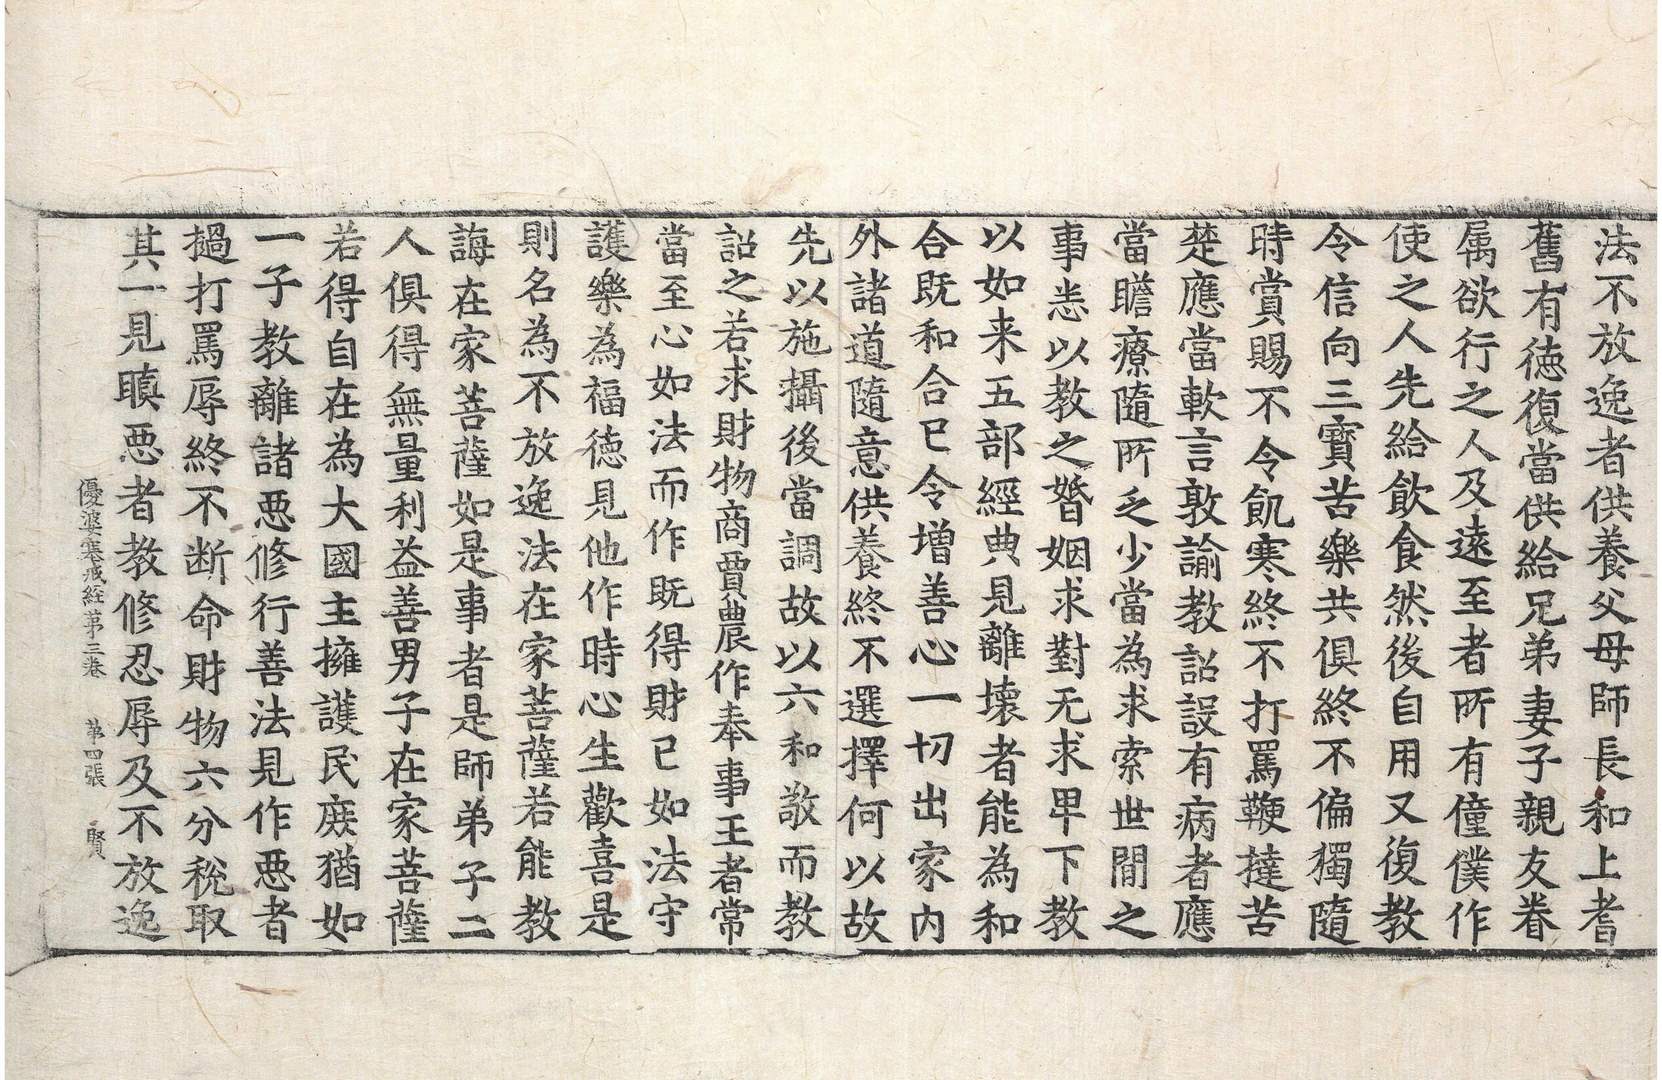 法不放逸者供養父母師長和上耆
舊有德復當供給兄弟妻子親友眷
属欲行之人及遠至者所有僮僕作
使之人先給飲食然後自用又復教
令信向三寶苦樂共俱終不偏獨隨
時賞賜不令飢寒終不打罵鞭撻苦
楚應當軟言敦諭教詔設有病者應
當瞻療隨所乏少當為求索世間之
事悉以教之婚姻求對无求卑下教
以如来五部經典見離壞者能為和
合既和合已令增善心一切出家内
外諸道隨意供養終不選擇何以故
先以施攝後當調故以六和敬而教
詔之若求財物商賈農作奉事王者常
當至心如法而作既得財已如法守
護樂為福德見他作時心生歡喜是
則名為不放逸法在家菩薩若能教
誨在家菩薩如是事者是師弟子二
人俱得無量利益善男子在家菩薩
若得自在為大國主擁護民庶猶如
一子教離諸悪修行善法見作悪者
撾打罵辱終不断命財物六分稅取
其一見瞋悪者教修忍辱及不放逸
優婆塞戒経第三卷 第四張 賢